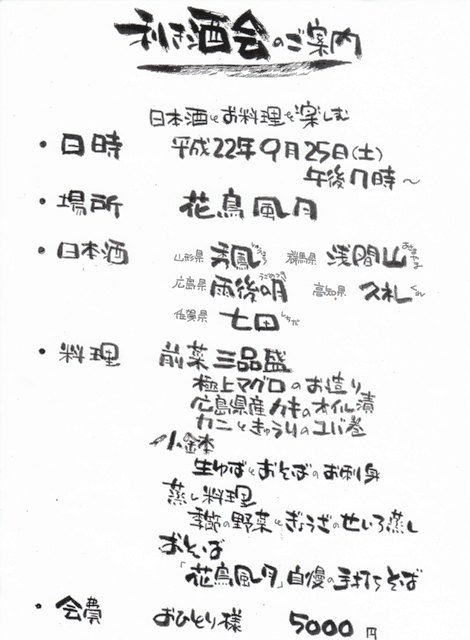 利き酒会のご案内
日本酒とお料理を楽しむ
・日時 平成22年9月25日(土)
午後7時〜
・場所 花鳥風月
・日本酒 山形県 秀鳳 群馬県 浅間山
広島県 雨後の月 高知県 久礼
佐賀県 七田
・料理 前菜三品盛
極上マグロのお造り
広島県産カキのオイル漬
カニときゅうりのユバ巻
小鉢
生ゆばとおそばのお刺身
蒸し料理
季節の野菜とぎょうざのせいろ蒸し
おそば
「花鳥風月」自慢の手打ちそば
・会費 おひとり様 5000円